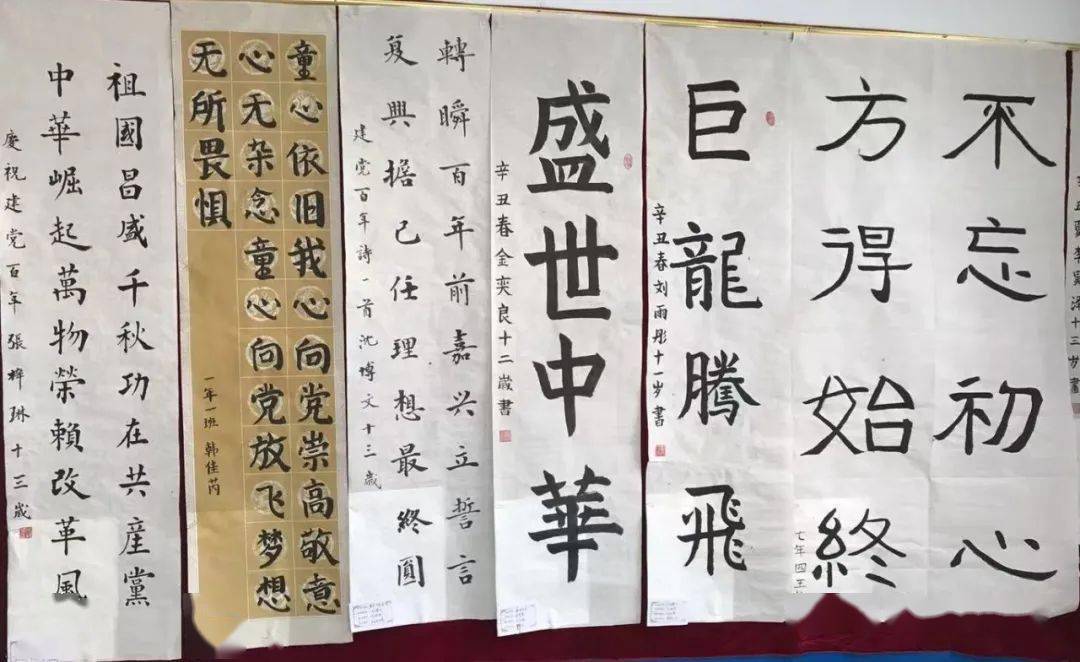 十三岁書
不忘初心
方得始終
七年四
巨龍騰飛
辛丑春刘雨彤十一岁書
盛世中華
辛丑春金奕良十二歲書
轉瞬百年前嘉兴立誓言
复興擔己任理想最終圓
建党百年詩一首沈博文十三歲
童心依旧我心向党崇高敬意
心无杂念童心向党放飞梦想
无所畏惧
一年一班 韩佳芮
祖國昌盛千秋功在共産黨
中華崛起萬物榮賴改革風
慶祝建党百年張梓琳十三歲